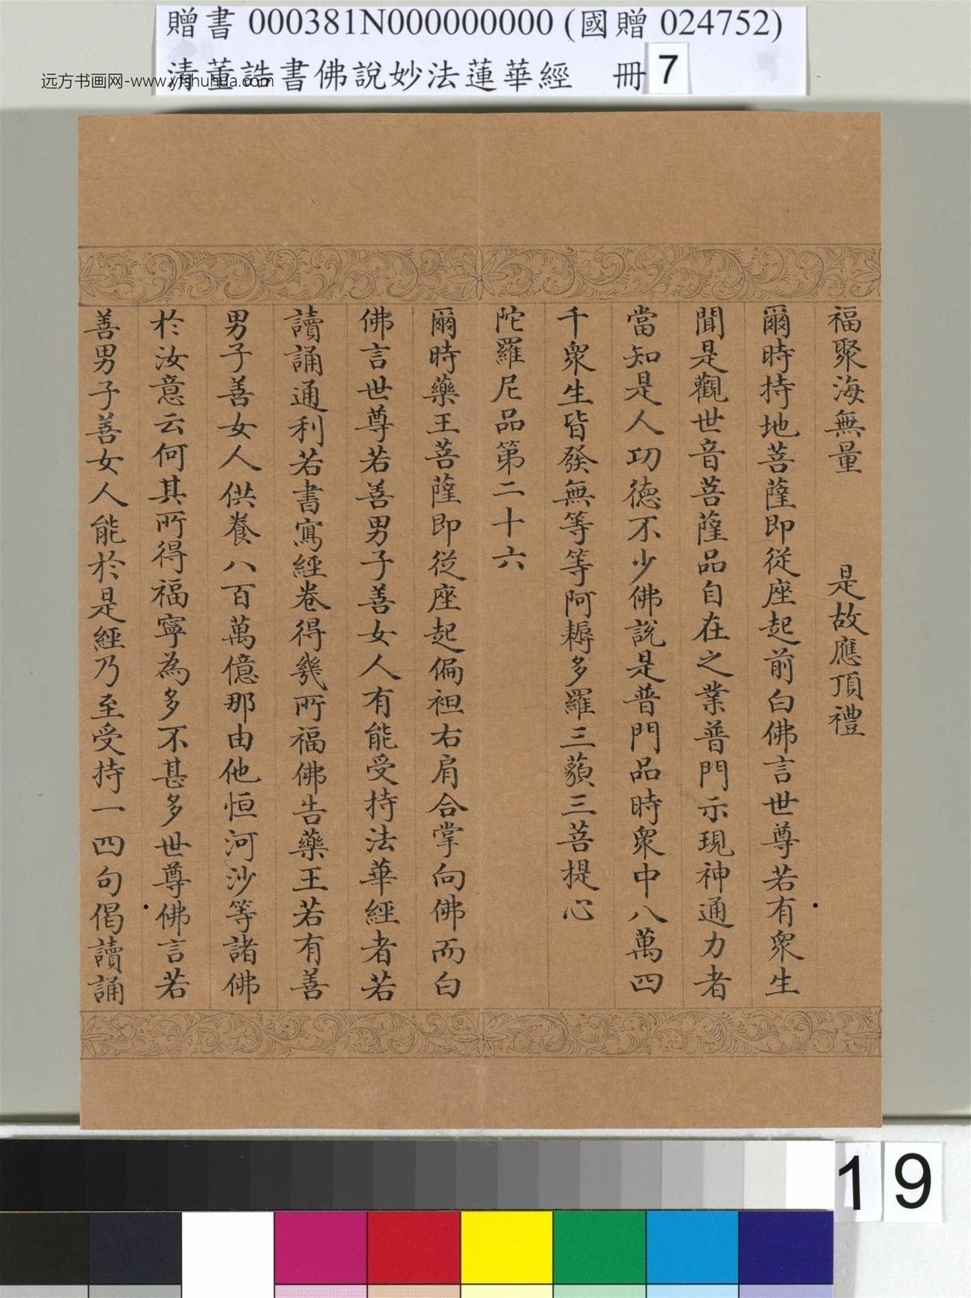 贈書 000381N000000000 (國贈 024752)
清董誥書佛說妙法蓮華經 冊 7
远方书画网-www.yfshuhua.com
福聚海無量 是故應頂禮
爾時持地菩薩即從座起前白佛言世尊若有衆生
聞是觀世音菩薩品自在之業普門示現神通力者
當知是人功德不少佛說是普門品時衆中八萬四
千衆生皆發無等等阿耨多羅三藐三菩提心
陀羅尼品第二十六
爾時藥王菩薩即從座起偏袒右肩合掌向佛而白
佛言世尊若善男子善女人有能受持法華經者若
讀誦通利若書寫經卷得幾所福佛告藥王若有善
男子善女人供養八百萬億那由他恒河沙等諸佛
於汝意云何其所得福寧為多不甚多世尊佛言若
善男子善女人能於是經乃至受持一四句偈讀誦
19